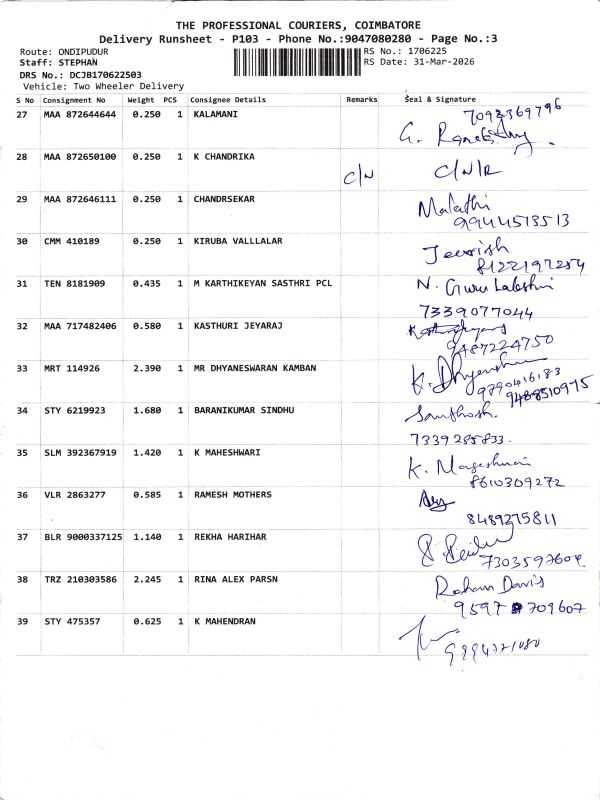 THE PROFESSIONAL COURIERS, COIMBATORE
Delivery Runsheet - P103 - Phone No.:9047080280 - Page No.:3
Route: ONDIPUDUR RS No.: 1706225
Staff: STEPHAN RS Date: 31-Mar-2026
DRS No.: DCJB170622503
Vehicle: Two Wheeler Delivery
S No Consignment No Weight PCS Consignee Details Remarks Seal & Signature
27 MAA 872644644 0.250 1 KALAMANI 7092369796
G.
28 MAA 872650100 0.250 1 K CHANDRIKA
C/N C/N/R
29 MAA 872646111 0.250 1 CHANDRSEKAR Malathi
9944513513
30 CMM 410189 0.250 1 KIRUBA VALLLALAR
8122197254
31 TEN 8181909 0.435 1 M KARTHIKEYAN SASTHRI PCL N. Guru Lakshmi
7339077044
32 MAA 717482406 0.580 1 KASTHURI JEYARAJ
9487224750
33 MRT 114926 2.390 1 MR DHYANESWARAN KAMBAN K.
9790416183
9488510975
34 STY 6219923 1.680 1 BARANIKUMAR SINDHU Santhosh.
7339285833.
35 SLM 392367919 1.420 1 K MAHESHWARI K. Mageshwari
8610309272
36 VLR 2863277 0.585 1 RAMESH MOTHERS
8489275811
37 BLR 9000337125 1.140 1 REKHA HARIHAR
7303597604
38 TRZ 210303586 2.245 1 RINA ALEX PARSN Rohan Davis
9597 709607
39 STY 475357 0.625 1 K MAHENDRAN
9994371080